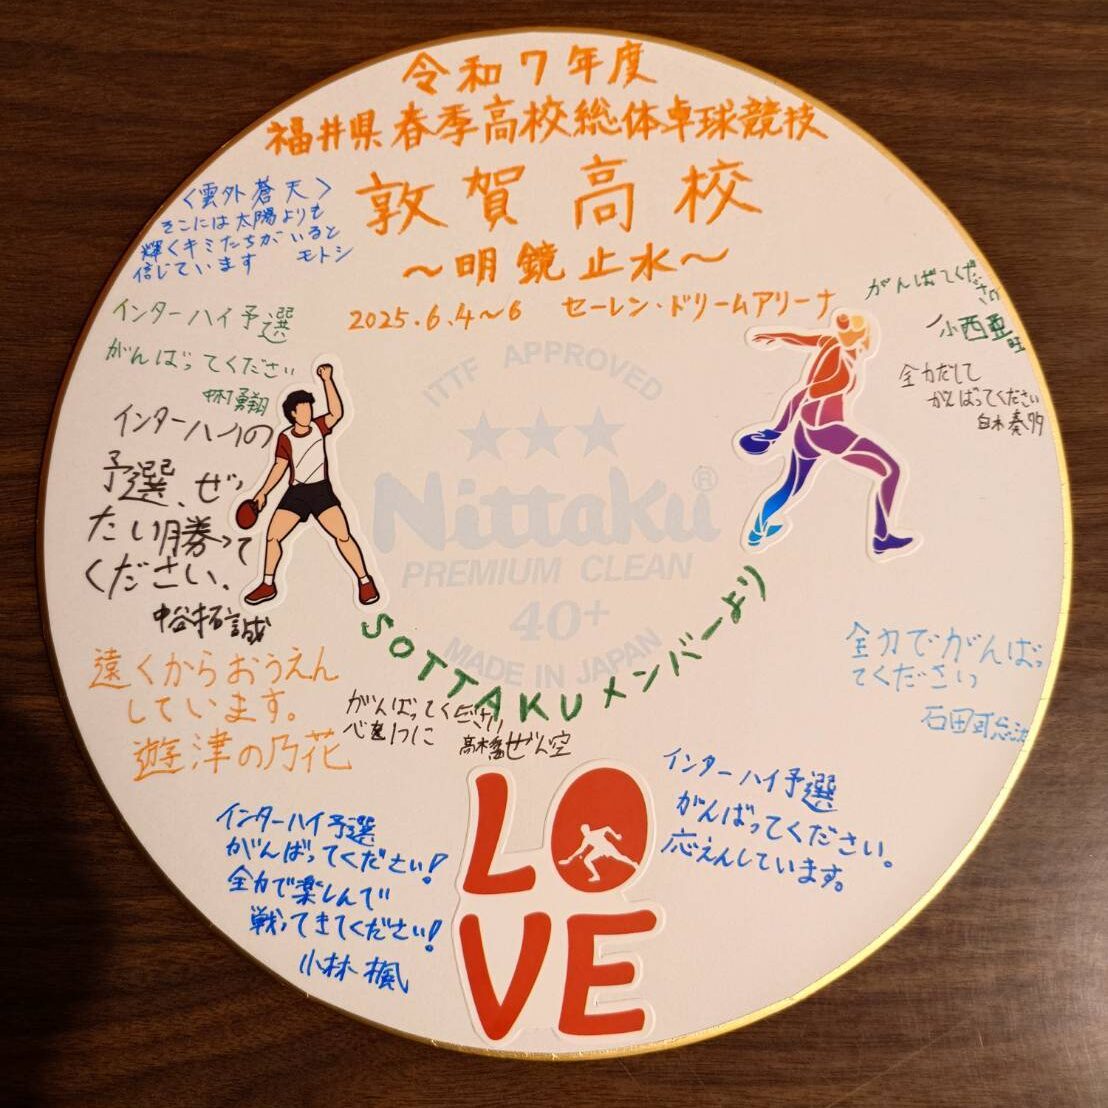 令和7年度
福井県春季高校総体卓球競技
敦賀高校
～明鏡止水～
2025.6.4～6 セーレン・ドリームアリーナ
〈雲外蒼天〉
そこには太陽よりも
輝くキミたちがいると
信じています モトシ
インターハイ予選
がんばってください
中村勇翔
インターハイの
予選、ぜっ
たい勝って
ください、
中谷拓誠
がんばってください
小西亜旺
全力だして
がんばってください
白木奏夕
ITTF APPROVED
★★★
Nittaku®
PREMIUM CLEAN
40+
MADE IN JAPAN
SOTTAKUメンバーより
遠くからおうえん
しています。
遊津の乃花
がんばってください
心を1つに
高橋ぜん空
全力でがんばっ
てくださいっ
石田
インターハイ予選
がんばってください!
全力で楽しんで
戦ってきてください!
小林楓
インターハイ予選
がんばってください。
応えんしています。
LO
VE